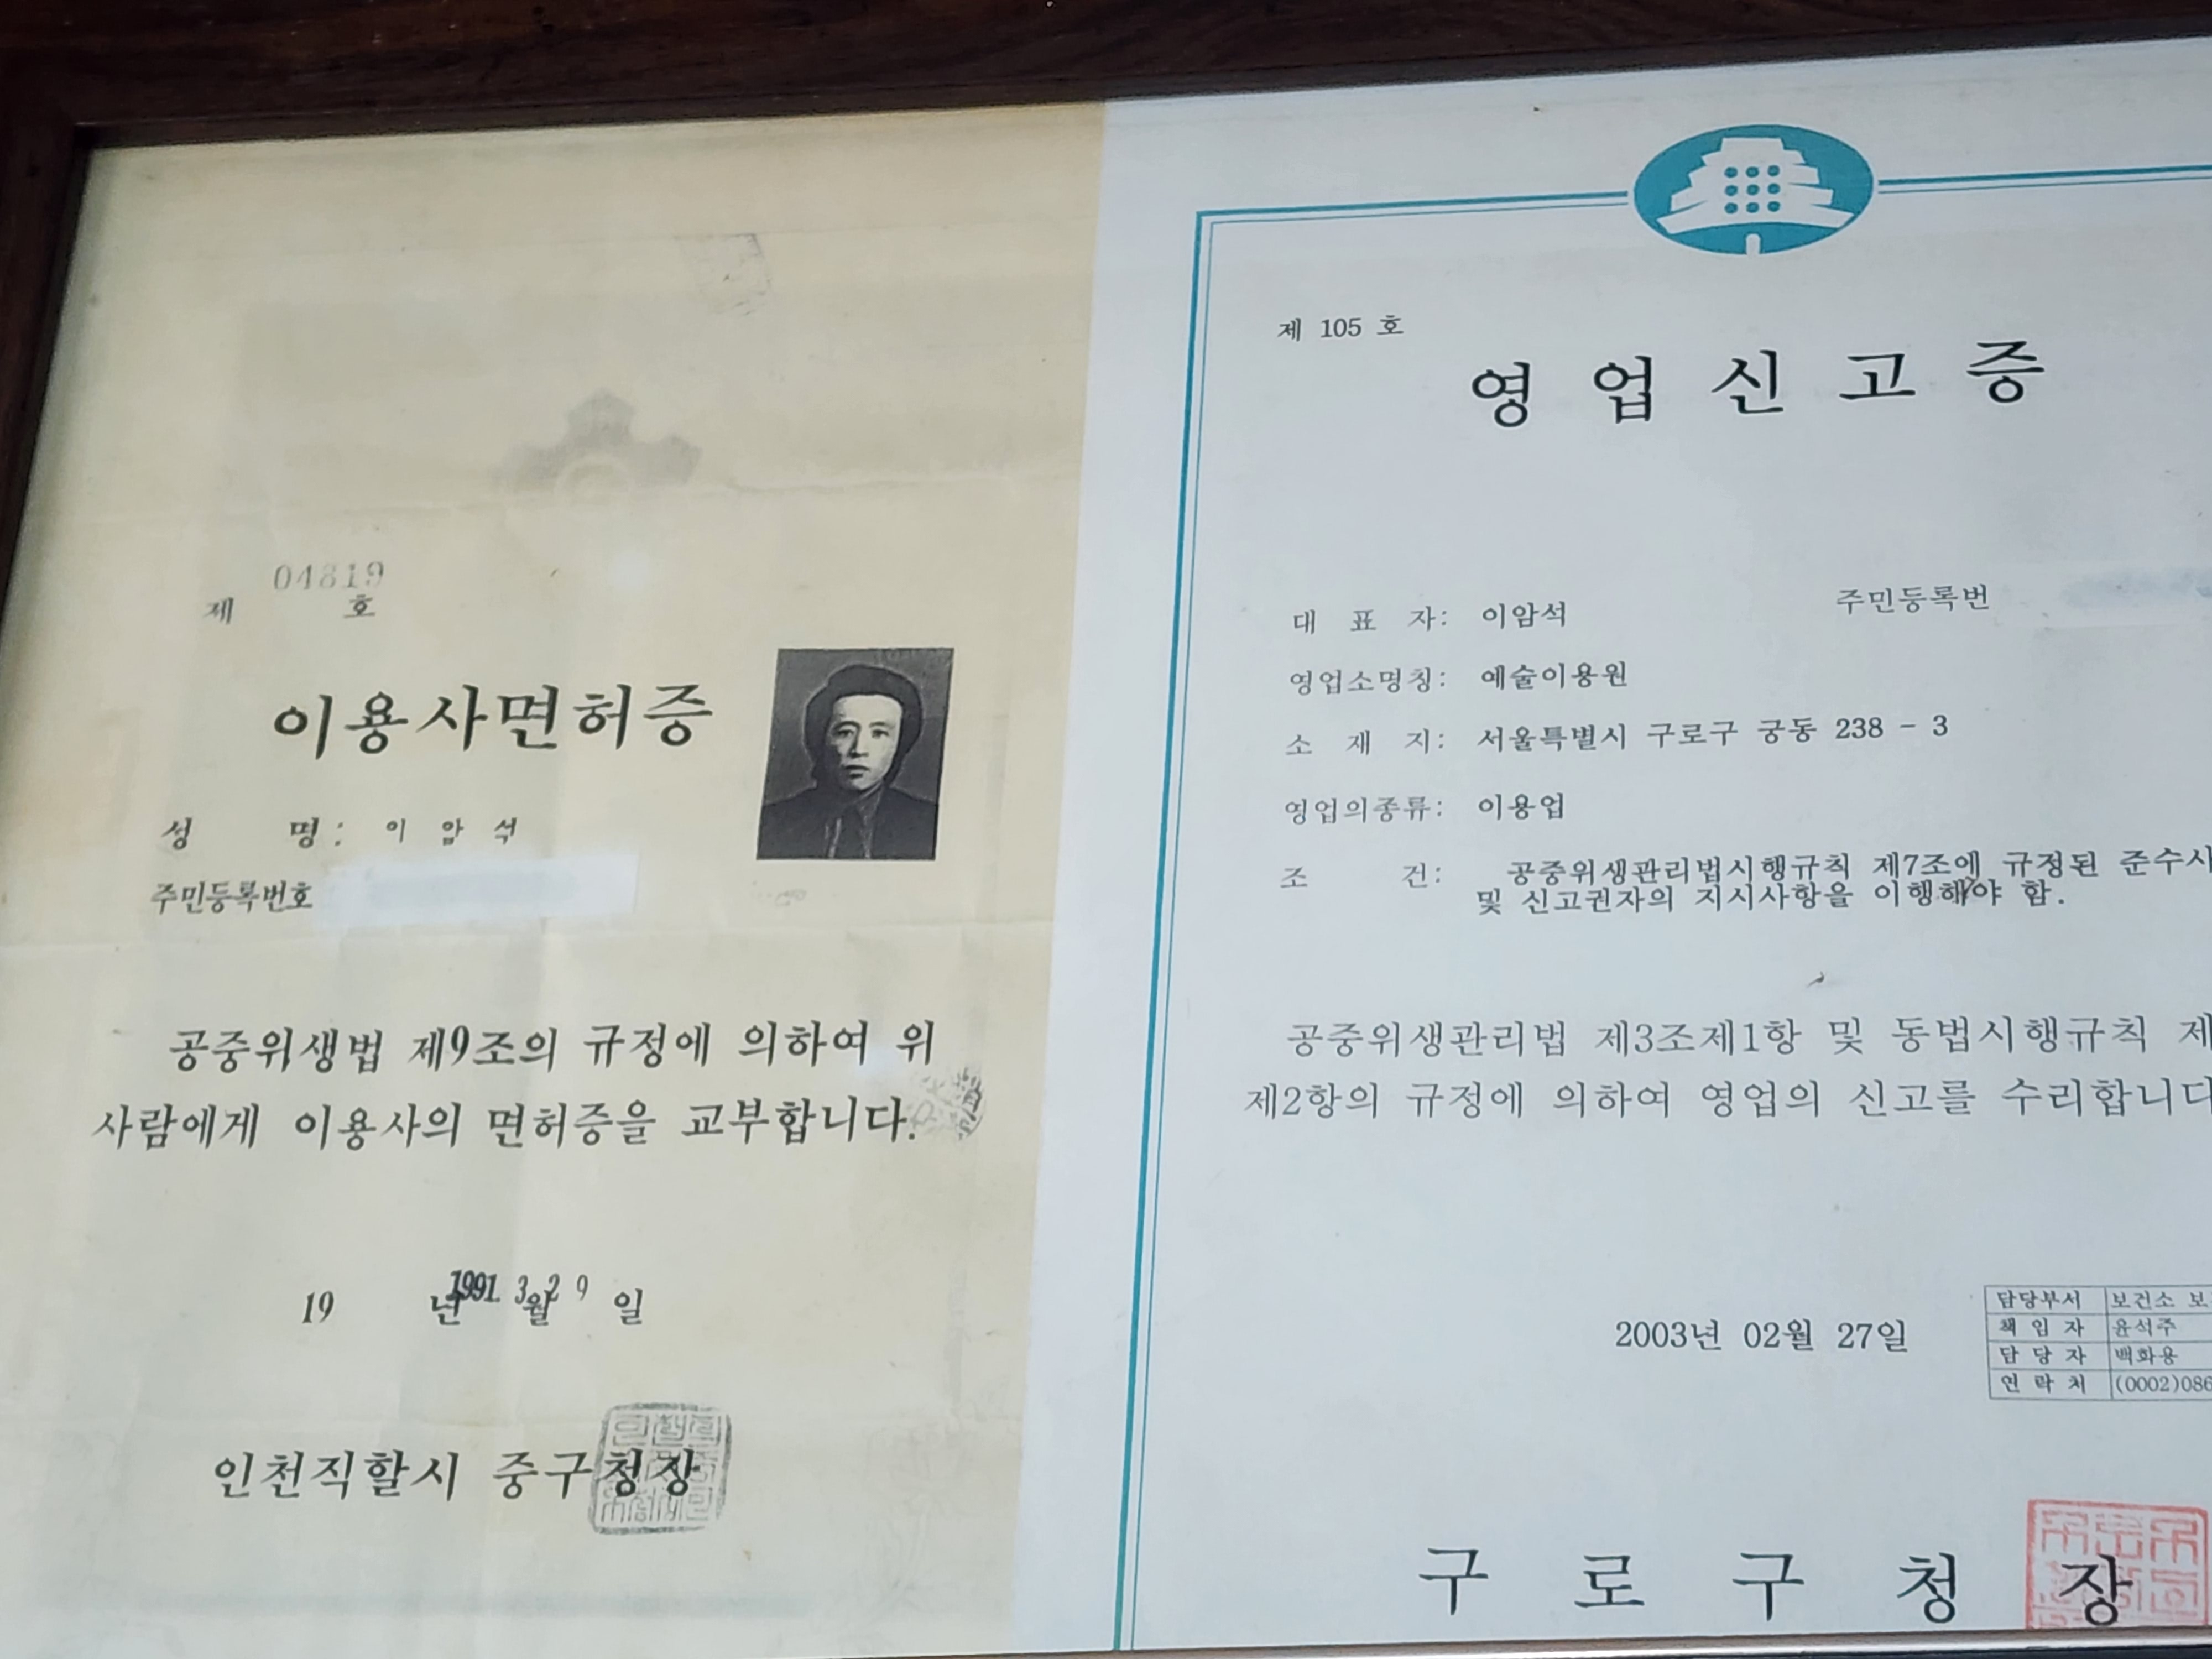 04819
제 호
이용사면허증
성 명: 이 암 석
주민등록번호
공중위생법 제9조의 규정에 의하여 위
사람에게 이용사의 면허증을 교부합니다.
19 년 월 일
1991. 3. 29
인천직할시 중구청장
제 105 호
영업신고증
대 표 자: 이암석 주민등록번
영업소명칭: 예술이용원
소 재 지: 서울특별시 구로구 궁동 238 - 3
영업의종류: 이용업
조 건: 공중위생관리법시행규칙 제7조에 규정된 준수사
및 신고권자의 지시사항을 이행해야 함.
공중위생관리법 제3조제1항 및 동법시행규칙 제
제2항의 규정에 의하여 영업의 신고를 수리합니다
2003년 02월 27일
담당부서 보건소 보
책 임 자 윤석주
담 당 자 백화용
연 락 처 (0002)086
구 로 구 청 장